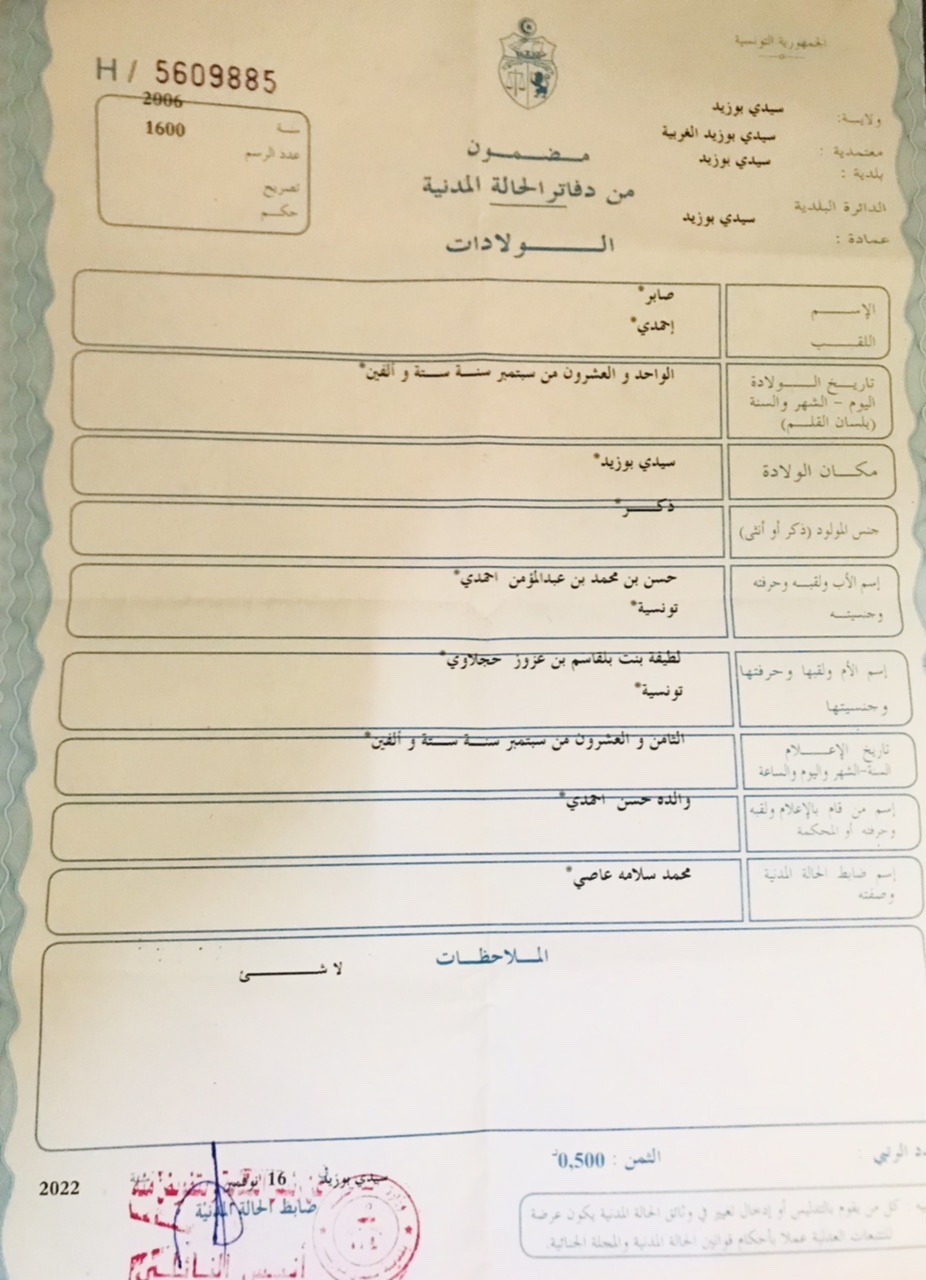 الجمهورية التونسية
H / 5609885
ولاية: سيدي بوزيد
معتمدية : سيدي بوزيد الغربية
بلدية : سيدي بوزيد
الدائرة البلدية سيدي بوزيد
عمادة :
2006
سنة 1600
عدد الرسم
تصريح
حكم
مضمون
من دفاتر الحالة المدنية
الولادات
الإسم صابر*
اللقب إحمدي*
تاريخ الولادة الواحد و العشرون من سبتمبر سنة ستة و ألفين*
اليوم - الشهر والسنة
(بلسان القلم)
مكان الولادة سيدي بوزيد*
جنس المولود (ذكر أو أنثى) ذكر*
إسم الأب ولقبه وحرفته حسن بن محمد بن عبدالمؤمن احمدي*
وجنسيته تونسية*
إسم الأم ولقبها وحرفتها لطيفة بنت بلقاسم بن عزوز حجلاوي*
وجنسيتها تونسية*
تاريخ الإعلام الثامن و العشرون من سبتمبر سنة ستة و ألفين*
السنة-الشهر واليوم والساعة
إسم من قام بالإعلام ولقبه والده حسن احمدي*
وحرفته أو المحكمة
إسم ضابط الحالة المدنية محمد سلامه عاصي*
وصفته
الملاحظات
لا شئ
الثمن : 0,500
سيدي بوزيد 16 نوفمبر 2022
ضابط الحالة المدنية
كل من يقوم بالتدليس أو إدخال تغيير في وثائق الحالة المدنية يكون عرضة
للتتبعات العدلية عملا بأحكام قوانين الحالة المدنية والمجلة الجنائية.